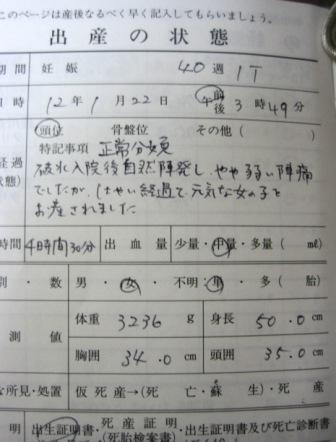 このページは産後なるべく早く記入してもらいましょう。
出産の状態
期間 妊娠 40週 1日
日時 12年1月22日 午前後 3時49分
頭位 骨盤位 その他( )
特記事項 正常分娩
経過
状態)
破水入院後自然陣発し、やや弱い陣痛
でしたが、はやい経過で元気な女の子を
お産されました
時間 4時間30分 出血量 少量・中量・多量( mℓ)
別・数 男・女・不明・単・多(胎)
測値 体重 3236 g 身長 50.0cm
胸囲 34.0cm 頭囲 35.0cm
な所見・処置 仮死産→(死亡・蘇生)・死産
明 出生証明書・死産証明書(死胎検案書)・出生証明書及び死亡診断書